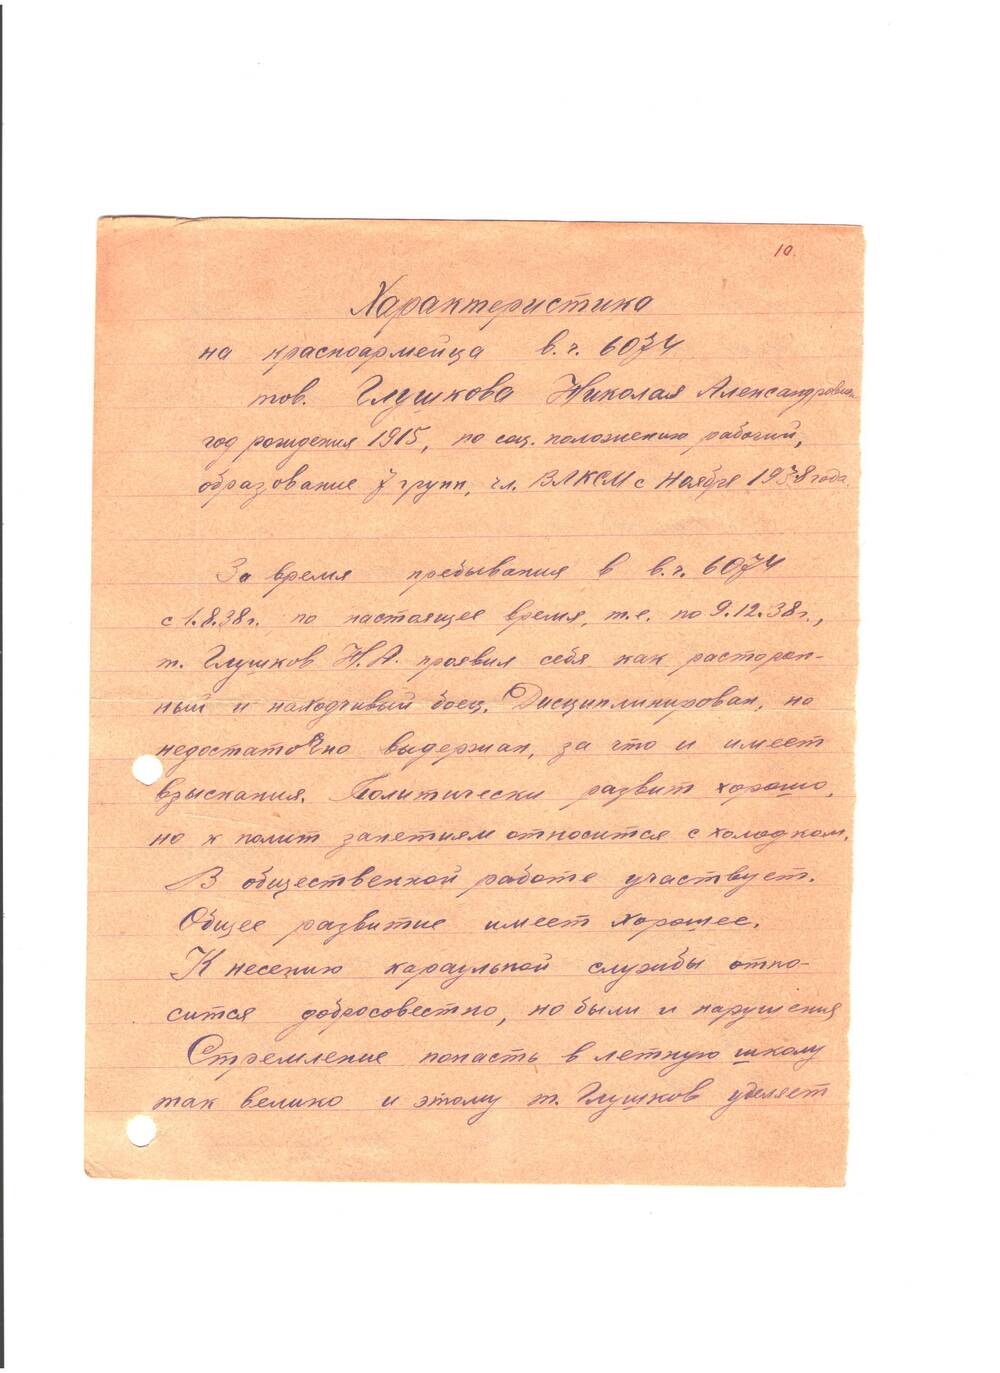 10.
Характеристика
на красноармейца в.ч. 6074
тов. Глушкова Николая Александрович
год рождения 1915, по соц. положению рабочий,
образование 7 групп, чл. ВЛКСМ с Ноября 1938 года.
За время пребывания в в.ч. 6074
с 1.8.38г. по настоящее время, т.е. по 9.12.38г.,
т. Глушков Н.А. проявил себя как растороп-
ный и находчивый боец. Дисциплинирован, но
недостаточно выдержан, за что и имеет
взыскания. Политически развит хорошо,
но к полит занетиям относится с холодком.
В общественной работе участвует.
Общее развитие имеет хорошее.
К несению караульной службы отно-
сится добросовестно, но были и нарушения
Стремление попасть в летную школу
так велико и этому т. Глушков уделяет